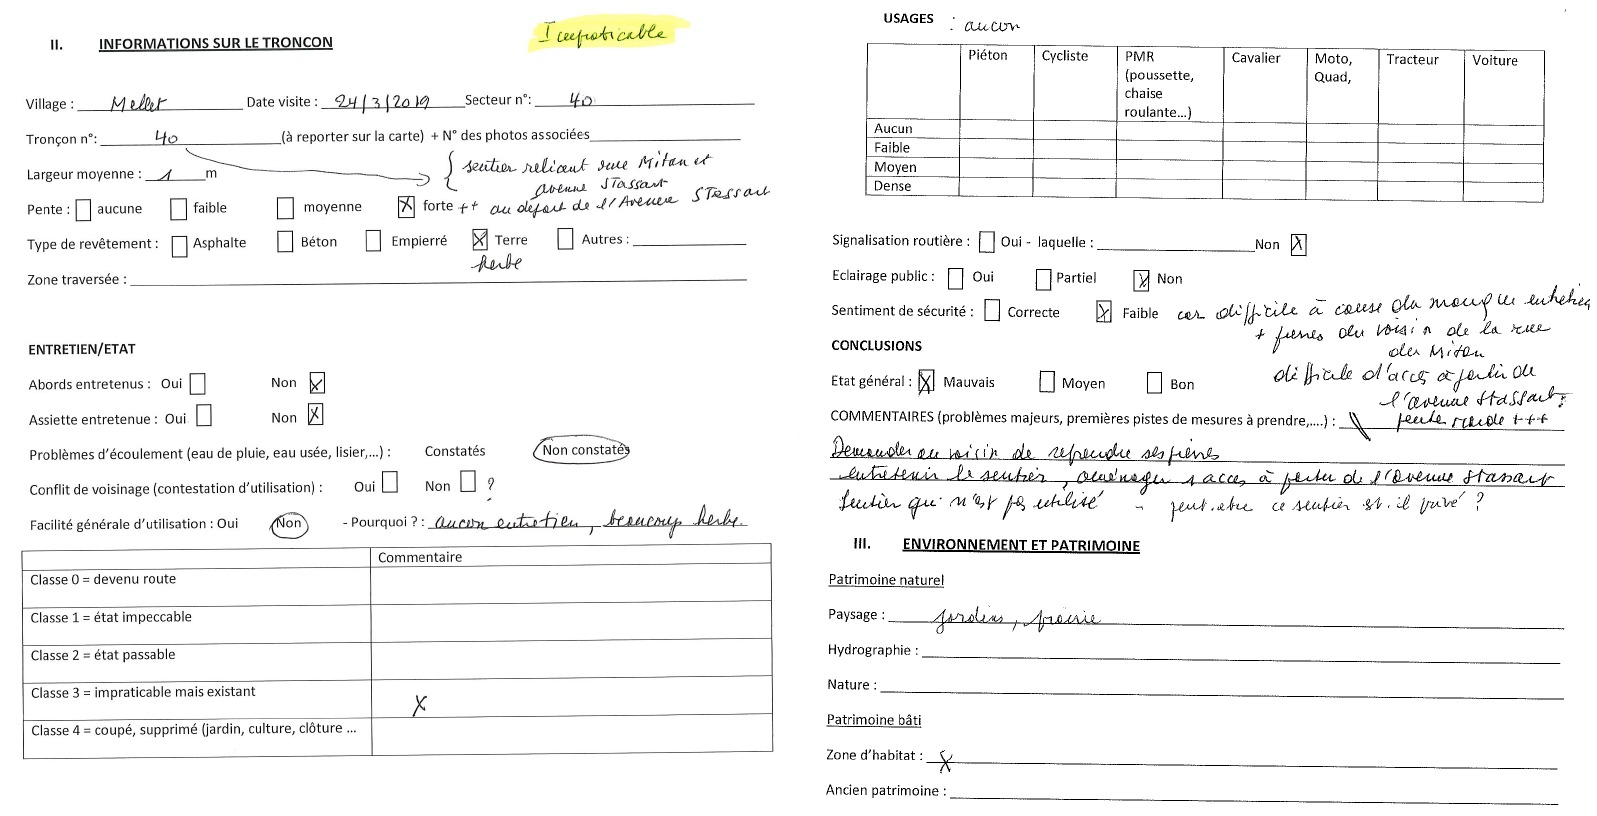 Impraticable
II. INFORMATIONS SUR LE TRONCON
Village : Mellet Date visite : 24/3/2019 Secteur n°: 40
Tronçon n°: 40 (à reporter sur la carte) + N° des photos associées
{ sentier reliant rue Mitan et
avenue Stassart
Largeur moyenne : 1 m
Pente : ☐ aucune ☐ faible ☐ moyenne ☒ forte ++ au départ de l'Avenue Stassart
Type de revêtement : ☐ Asphalte ☐ Béton ☐ Empierré ☒ Terre ☐ Autres :
herbe
Zone traversée :
ENTRETIEN/ETAT
Abords entretenus : Oui ☐ Non ☒
Assiette entretenue : Oui ☐ Non ☒
Problèmes d'écoulement (eau de pluie, eau usée, lisier,...) : Constatés Non constatés
Conflit de voisinage (contestation d'utilisation) : Oui ☐ Non ☐ ?
Facilité générale d'utilisation : Oui Non - Pourquoi ? : aucun entretien, beaucoup herbe.
Commentaire
Classe 0 = devenu route
Classe 1 = état impeccable
Classe 2 = état passable
Classe 3 = impraticable mais existant X
Classe 4 = coupé, supprimé (jardin, culture, clôture ...
USAGES : aucun
Piéton Cycliste PMR (poussette, chaise roulante...) Cavalier Moto, Quad, Tracteur Voiture
Aucun
Faible
Moyen
Dense
Signalisation routière : ☐ Oui - laquelle : Non ☒
Eclairage public : ☐ Oui ☐ Partiel ☒ Non
Sentiment de sécurité : ☐ Correcte ☒ Faible car difficile à cause du manque entretien
+ pierres du voisin de la rue
du Mitan
CONCLUSIONS
Etat général : ☒ Mauvais ☐ Moyen ☐ Bon
difficile d'accès à partir de
l'avenue Stassart :
pente raide +++
COMMENTAIRES (problèmes majeurs, premières pistes de mesures à prendre,....) :
Demander au voisin de reprendre ses pierres
entretenir le sentier, aménager 1 accès à partir de l'Avenue Stassart
Sentier qui n'est pas utilisé - peut-être ce sentier est-il privé ?
III. ENVIRONNEMENT ET PATRIMOINE
Patrimoine naturel
Paysage : jardins, prairie
Hydrographie :
Nature :
Patrimoine bâti
Zone d'habitat : X
Ancien patrimoine :